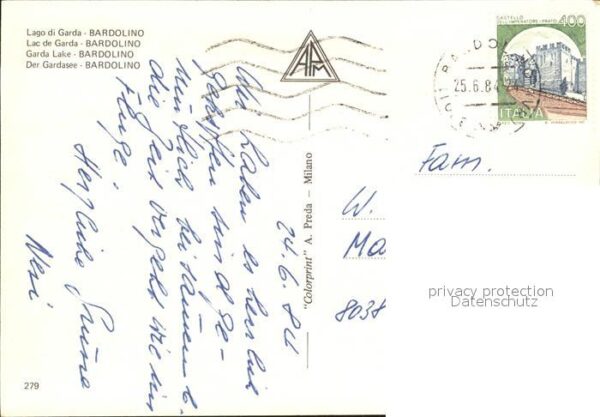 Lago di Garda - BARDOLINO
Lac de Garda - BARDOLINO
Garda Lake - BARDOLINO
Der Gardasee - BARDOLINO
24.6.84
Wir haben es herrlich
getroffen sind ge-
die Zeit vergeht wie im
Fluge.
Herzliche Grüße
"Colorprint" A. Preda - Milano
APM
25.6.84
CASTELLO
400
ITALIA
Fam.
W.
Ma
8038
privacy protection
Datenschutz
279